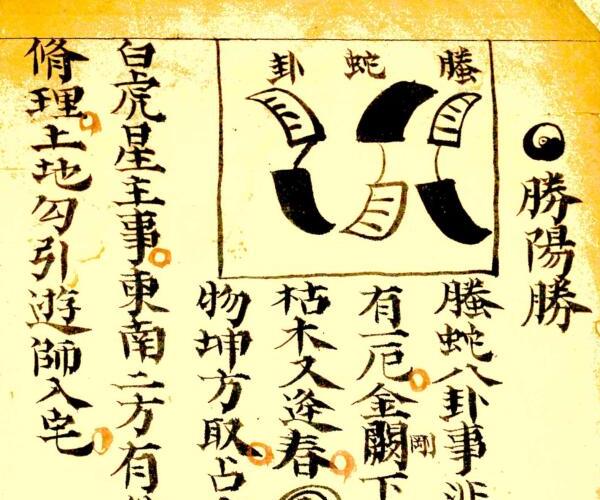 勝陽勝
螣蛇卦
螣蛇八卦事
有一厄金闕
剛
枯木又逢春
物坤方取占
白虎星主事東南二方有
脩理土地勾引遊師入宅